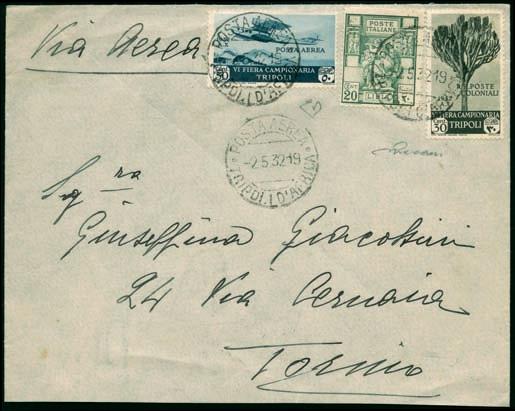 Via Aerea
POSTA AEREA
VI FIERA CAMPIONARIA
TRIPOLI
50
POSTE
ITALIANE
20
LIBIA
RR. POSTE
COLONIALI
VI FIERA CAMPIONARIA
30 TRIPOLI
-2.5.32.19
POSTA AEREA
-2.5.32.19
TRIPOLI D'AFRICA
Sg.ra
Giuseffina Giacobini
24 Via Cernaia
Torino